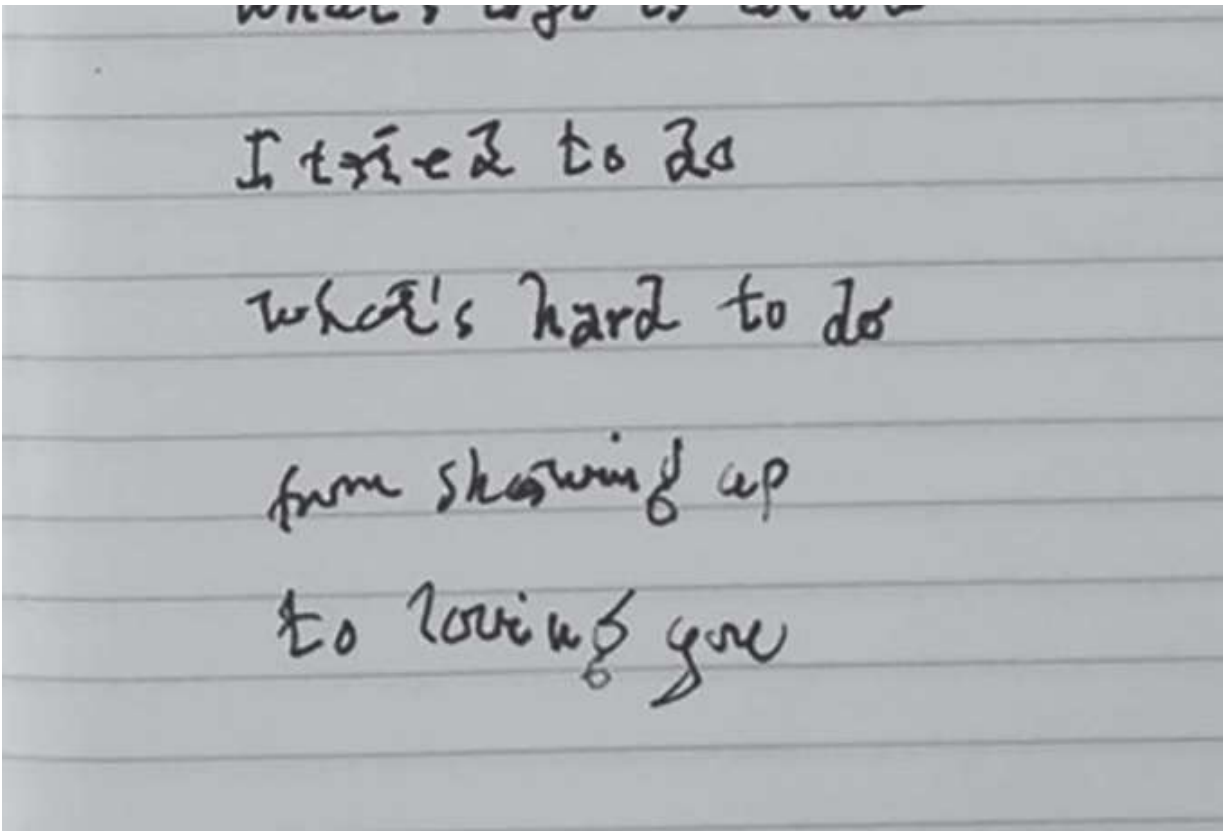 what's
I tried to do
what's hard to do
from showing up
to loving you